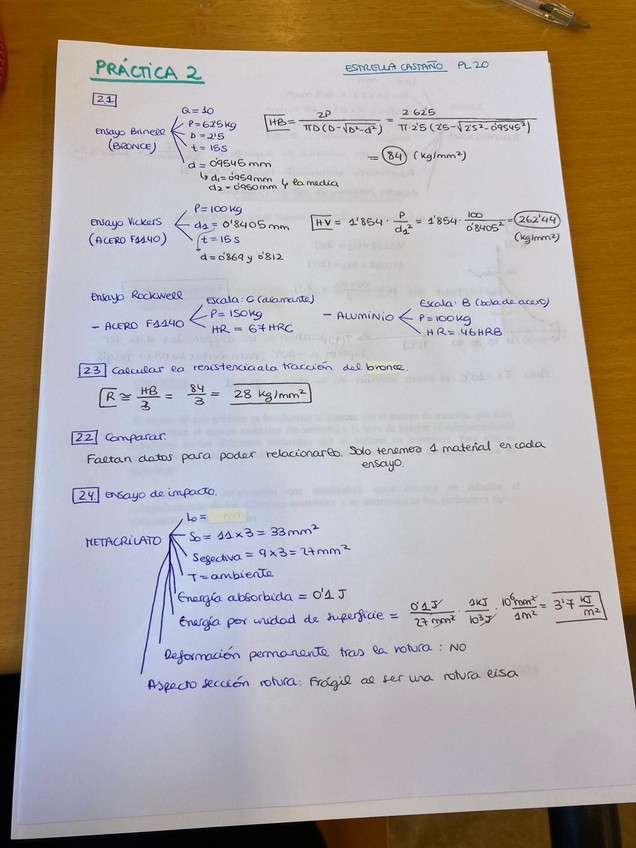 PRÁCTICA 2
ESTRELLA CASTAÑO PL20
2.1
Ensayo Brinell (BRONCE)
Q = 10
P = 62'5 kg
D = 2'5
t = 15 s
d = 0'9545 mm
↳ d1 = 0'959 mm
d2 = 0'950 mm ↳ la media
HB = 2P / πD(D-√D²-d²) = 2·62'5 / π·2'5 (2'5-√2'5²-0'9545²)
= 84 (kg/mm²)
Ensayo Vickers (ACERO F1140)
P = 100 kg
d1 = 0'8405 mm
t = 15 s
d = 0'869 y 0'812
HV = 1'854 · P/d1² = 1'854 · 100/0'8405² = 262'44
(kg/mm²)
Ensayo Rockwell
- ACERO F1140
Escala: C (diamante)
P = 150 kg
HR = 67 HRC
- ALUMINIO
Escala: B (bola de acero)
P = 100 kg
HR = 46 HRB
2.3 Calcular la resistencia a la tracción del bronce.
R ≅ HB/3 = 84/3 = 28 kg/mm²
2.2 Comparar.
Faltan datos para poder relacionarlo. Solo tenemos 1 material en cada
ensayo.
2.4 Ensayo de impacto.
METACRILATO
Lo =
So = 11 x 3 = 33 mm²
Sefectiva = 9 x 3 = 27 mm²
T = ambiente
Energía absorbida = 0'1 J
Energía por unidad de superficie = 0'1 J/27 mm² · 1 kJ/10³ J · 10⁶ mm²/1 m² = 3'7 kJ/m²
Deformación permanente tras la rotura: NO
Aspecto sección rotura: Frágil al ser una rotura lisa